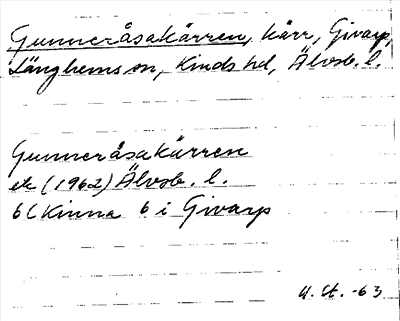 Gunneråsakärren, kärr, Givarp,
Länghems sn, Kinds hd, Älvsb. l.
Gunneråsakärren
ek (1962) Älvsb. l.
6C Kinna 6 i Givarp
-63